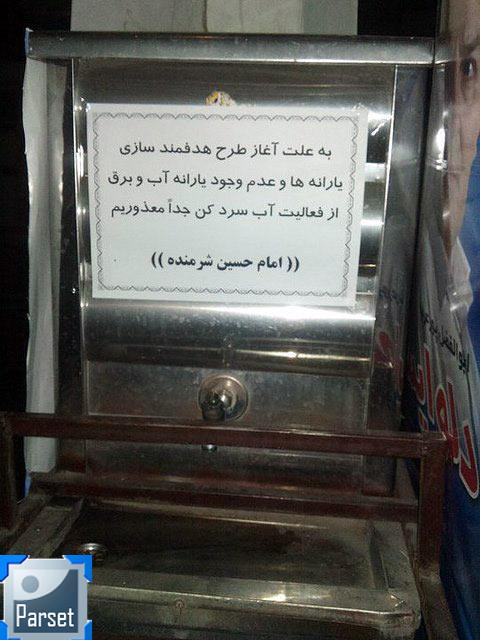 به علت آغاز طرح هدفمند سازی
یارانه ها و عدم وجود یارانه آب و برق
از فعالیت آب سرد کن جداً معذوریم
(( امام حسین شرمنده ))
Parset